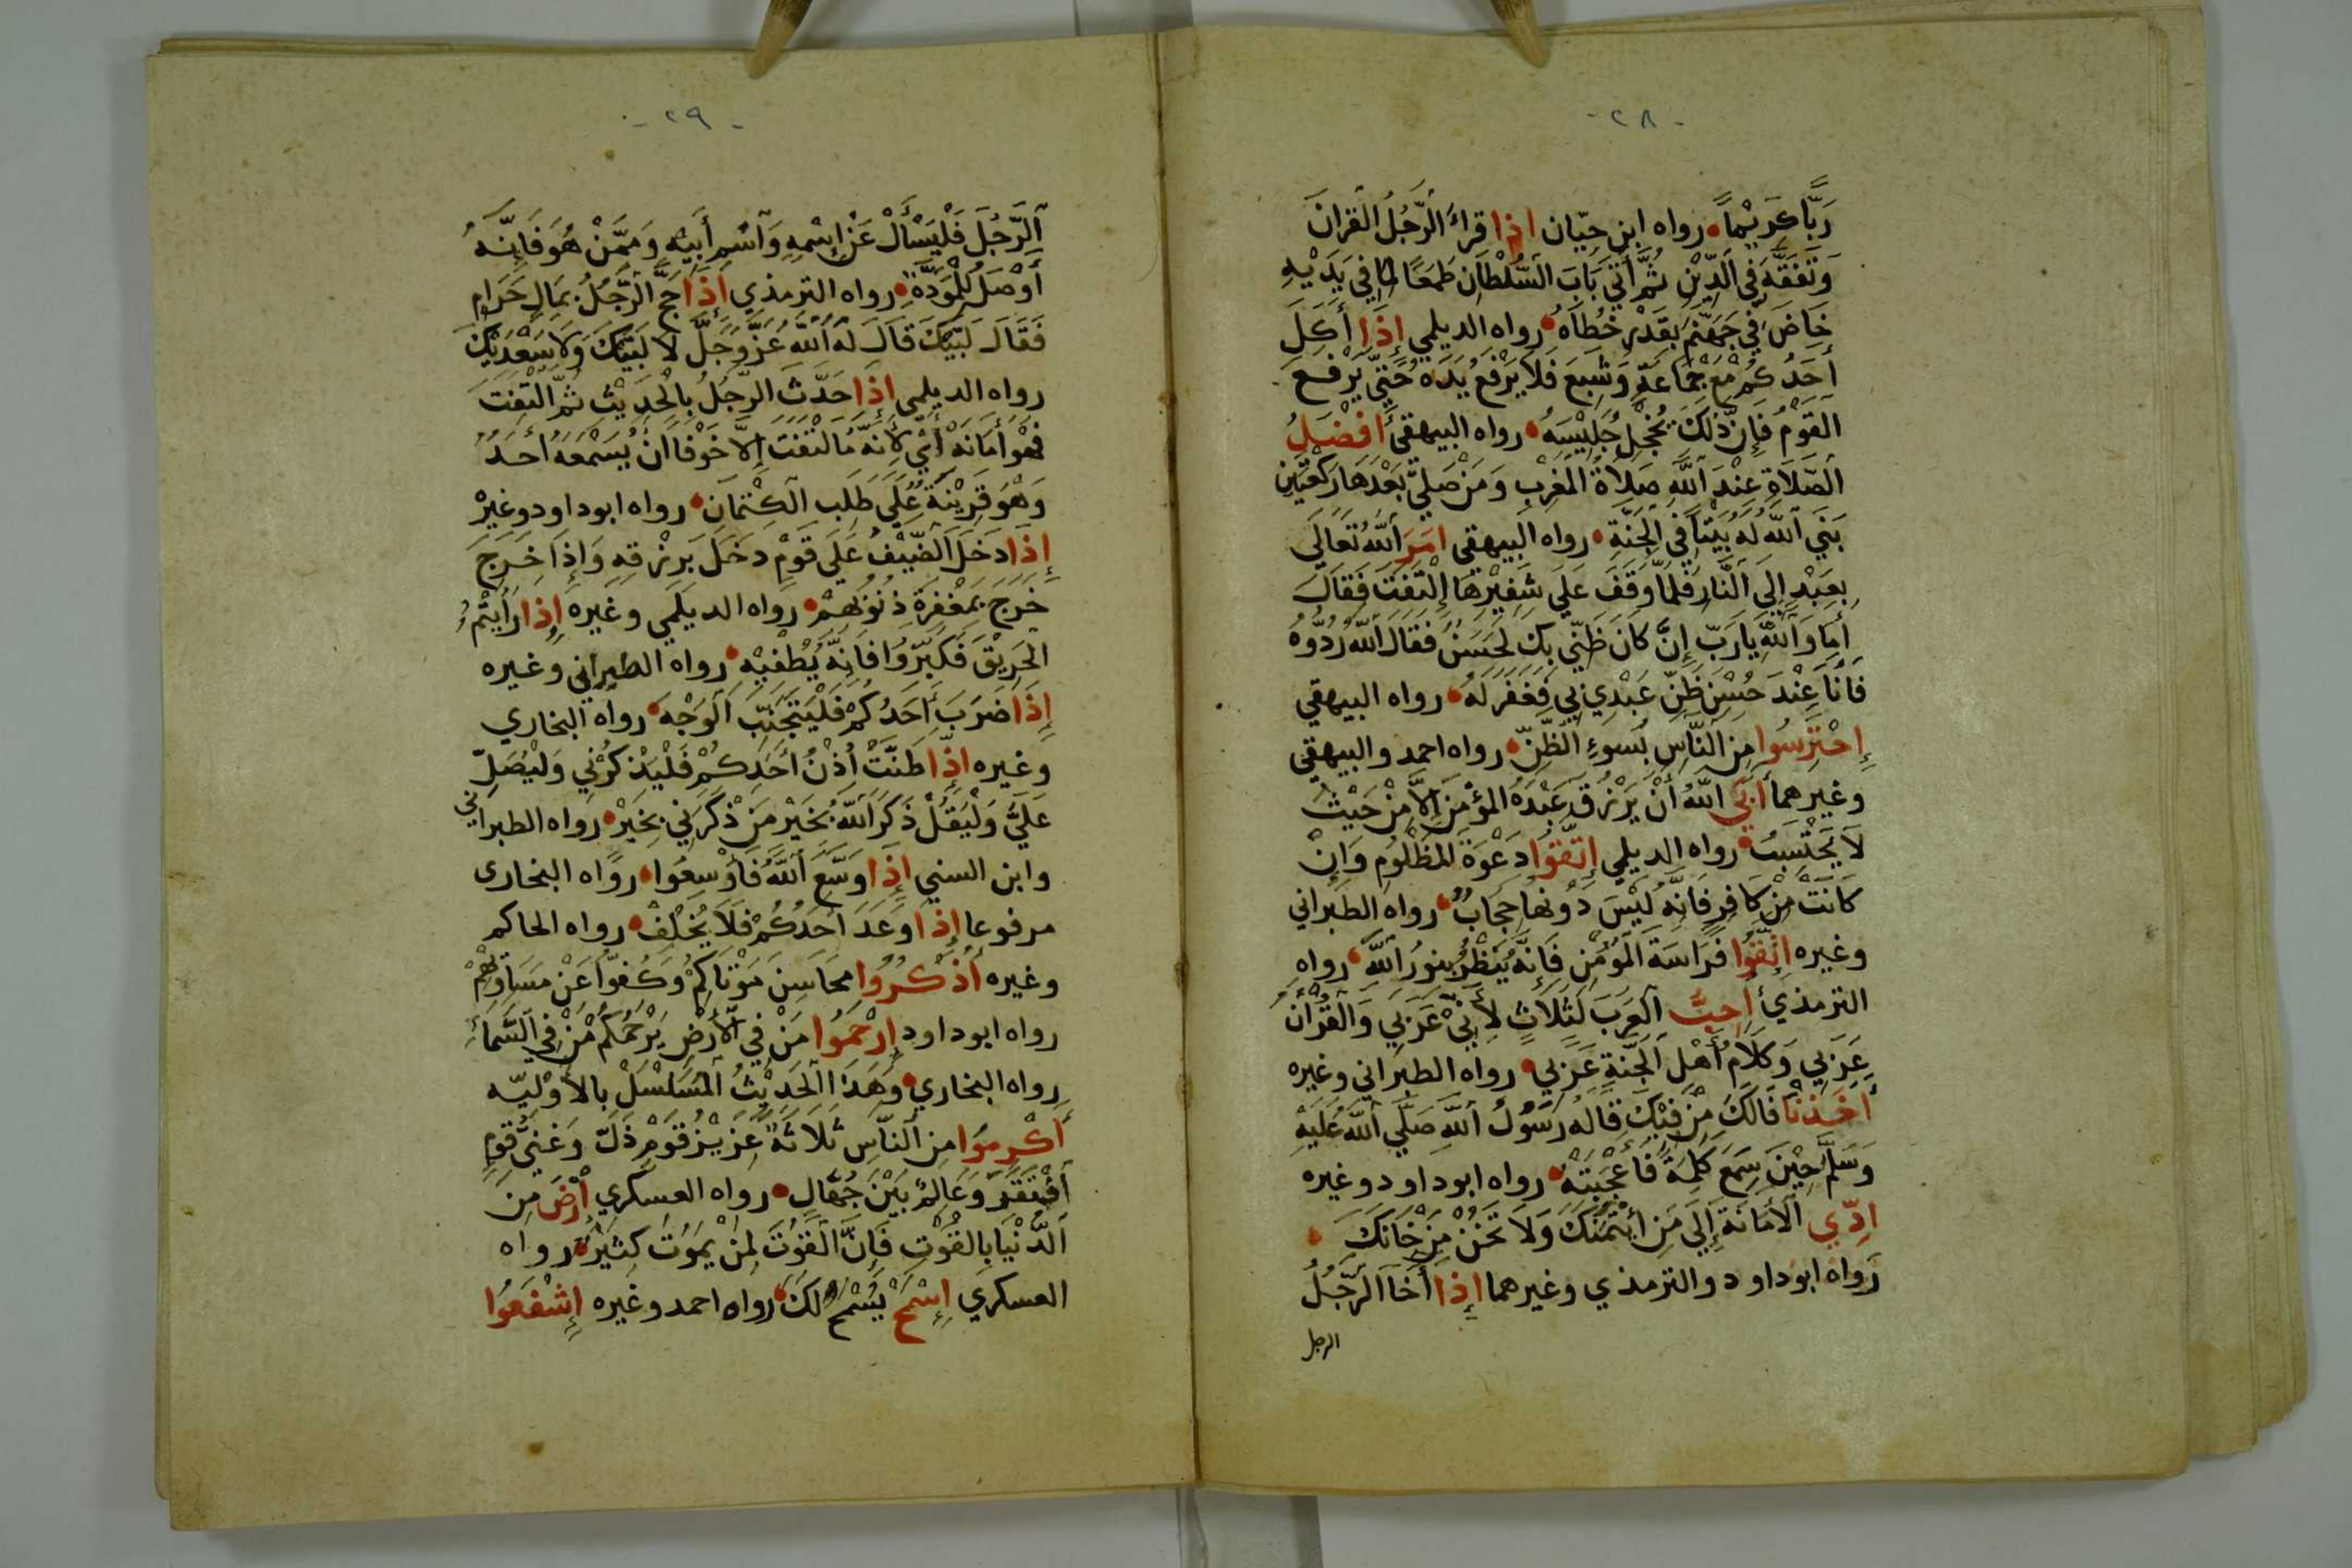 -٢٨-
رَبًّا كَرِيْمًا رواه ابن حبّان اذا قراءَ الرَّجُلُ القرانَ
وَتَفَقَّهَ فِي الدِّيْنِ ثُمَّ أَتَى بَابَ السُّلْطَانِ طَمَعًا لما فِي يَدَيْهِ
خَاضَ فِي جَهَنَّمَ بِقَدْرِ خُطَاهُ رواه الديلمي إِذَا أَكَلَ
أَحَدُكُمْ مَعَ جَمَاعَةٍ وَشَبِعَ فَلاَ يَرْفَعُ يَدَهُ حَتَّى يَرْفَعَ
القَوْمُ فَإِنَّ ذٰلِكَ يُخْجِلُ جَلِيْسَهُ رواه البيهقي أَفْضَلُ
الصَّلاَةِ عِنْدَ اللَّهِ صَلاَةُ المَغْرِبِ وَمَنْ صَلَّى بَعْدَهَا رَكْعَتَيْنِ
بَنَى اللَّهُ لَهُ بَيْتًا فِي الجَنَّةِ رواه البيهقي امَرَ اللَّهُ تَعَالَى
بِعَبْدٍ إِلَى النَّارِ فَلَمَّا وَقَفَ عَلَى شَفِيْرِهَا اِلْتَفَتَ فَقَالَ
أَمَا وَاللَّهِ يَا رَبِّ إِنْ كَانَ ظَنِّي بِكَ لَحَسَنٌ فَقَالَ اللَّهُ رُدُّوهُ
فَأَنَا عِنْدَ حُسْنِ ظَنِّ عَبْدِي بِي فَغَفَرَ لَهُ رواه البيهقي
إِحْتَرِسُوا مِنَ النَّاسِ بِسُوءِ الظَّنِّ رواه احمد والبيهقي
وغيرهما أَبَى اللَّهُ أَنْ يَرْزُقَ عَبْدَهُ المُؤْمِنَ إِلاَّ مِنْ حَيْثُ
لاَ يَحْتَسِبُ رواه الديلمي إِتَّقُوا دَعْوَةَ المَظْلُومِ وَإِنْ
كَانَتْ مِنْ كَافِرٍ فَإِنَّهُ لَيْسَ دُونَهَا حِجَابٌ رواه الطبراني
وغيره إِتَّقُوا فِرَاسَةَ المُؤْمِنِ فَإِنَّهُ يَنْظُرُ بِنُورِ اللَّهِ رواه
الترمذي أحِبَّ العَرَبَ لِثَلاَثٍ لأَنِّي عَرَبِي وَالقُرْأَنُ
عَرَبِي وَكَلاَمُ أَهْلِ الجَنَّةِ عَرَبِي رواه الطبراني وغيره
أَخَذْنَا فَالَكَ مِنْ فِيْكَ قَالَهُ رَسُولُ اللَّهِ صَلَّى اللَّهُ عَلَيْهِ
وَسَلَّمَ حِيْنَ سَمِعَ كَلِمَةً فَأَعْجَبَتْهُ رواه ابوداود وغيره
ادِّي الأَمَانَةَ إِلَى مَنِ ائْتَمَنَكَ وَلاَ تَخُنْ مَنْ خَانَكَ
رواه ابوداود والترمذي وغيرهما إِذَا أَخَا الرَّجُلُ
الرجل
-٢٩-
الرَّجُلَ فَلْيَسْأَلْ عَنْ إِسْمِهِ وَاسْمِ أَبِيْهِ وَمِمَّنْ هُوَ فَإِنَّهُ
أَوْصَلُ لِلْمَوَدَّةِ رواه الترمذي إِذَا حَجَّ الرَّجُلُ بِمَالٍ حَرَامٍ
فَقَالَ لَبَّيْكَ قَالَ لَهُ اللَّهُ عَزَّ وَجَلَّ لاَ لَبَّيْكَ وَلاَ سَعْدَيْكَ
رواه الديلمي إِذَا حَدَّثَ الرَّجُلُ بِالْحَدِيْثِ ثُمَّ الْتَفَتَ
فَهُوَ أَمَانَةٌ أَيْ لأَنَّهُ مَا لْتَفَتَ إِلاَّ خَوْفًا انْ يَسْمَعَهُ أَحَدٌ
وَهْوَ قَرِيْنَةٌ عَلَى طَلَبِ الكِتْمَانِ رواه ابوداود وغيرْ
إِذَا دَخَلَ الضَّيْفُ عَلَى قَوْمٍ دَخَلَ بِرِزْقِهِ وَإِذَا خَرَجَ
خَرَجَ بِمَغْفِرَةِ ذُنُوبِهِمْ رواه الديلمي وغيره إِذَا رَأَيْتُمُ
الحَرِيْقَ فَكَبِّرُوا فَإِنَّهُ يُطْفِيْهِ رواه الطبراني وغيره
إِذَا ضَرَبَ أَحَدُكُمْ فَلْيَتَجَنَّبِ الوَجْهَ رواه البخاري
وغيره إِذَا طَنَّتْ أُذُنُ أَحَدِكُمْ فَلْيَذْكُرْنِي وَلْيُصَلِّ
عَلَيَّ وَلْيَقُلْ ذَكَرَ اللَّهُ بِخَيْرٍ مَنْ ذَكَرَنِي بِخَيْرْ رواه الطبراني
وابن السني إِذَا وَسَّعَ اللَّهُ فَأَوْسِعُوا رواه البخاري
مرفوعا إِذَا وَعَدَ أَحَدُكُمْ فَلاَ يُخْلِفْ رواه الحاكم
وغيره أُذْكُرُوا محَاسِنَ مَوْتَاكُمْ وَكُفوّا عَنْ مَسَاوِيهِمْ
رواه ابوداود إِرْحَمُوا مَنْ فِي الأَرْضِ يَرْحَمُكُمْ مَنْ فِي السَّمَاءِ
رواه البخاري وَهَذَا الحَدِيْثُ المُسَلْسَلْ بالأَوَّليّه
أَكْرِمُوا مِنَ النَّاسِ ثَلاَثَةً عَزِيْزُ قَوْمٍ ذَلَّ وَغَنِيُّ قَوْمٍ
افْتَقَرَ وَعَالِمٌ بَيْنَ جُهَّالٍ رواه العسكري أَرْضَ مِنَ
الدُّنْيَا بِالقُوْتِ فَإِنَّ القُوْتَ لِمَنْ يَمُوْتُ كَثِيْرٌ رواه
العسكري إِسْمَحْ يُسْمَحْ لَكَ رواه احمد وغيره إِشْفَعُوا